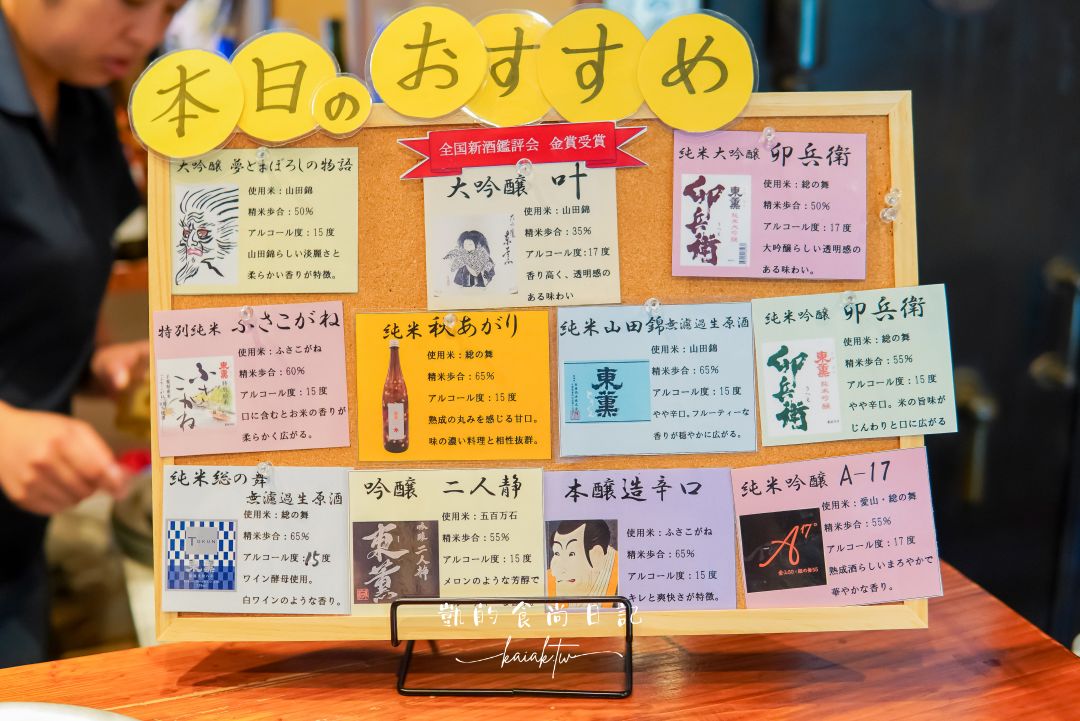 本日のおすすめ
全国新酒鑑評会 金賞受賞
大吟醸 夢とまぼろしの物語
使用米：山田錦
精米歩合：50％
アルコール度：15度
山田錦らしい淡麗さと
柔らかい香りが特徴。
大吟醸 叶
使用米：山田錦
精米歩合：35％
アルコール度：17度
香り高く、透明感の
ある味わい
純米大吟醸 卯兵衛
使用米：総の舞
精米歩合：50％
アルコール度：17度
大吟醸らしい透明感の
ある味わい。
東薫
純米大吟醸
卯兵衛
特別純米 ふさこがね
使用米：ふさこがね
精米歩合：60％
アルコール度：15度
口に含むとお米の香りが
柔らかく広がる。
東薫
ふさこがね
純米秋あがり
使用米：総の舞
精米歩合：65％
アルコール度：15度
熟成の丸みを感じる甘口。
味の濃い料理と相性抜群。
純米山田錦無濾過生原酒
使用米：山田錦
精米歩合：65％
アルコール度：15度
やや辛口。フルーティーな
香りが穏やかに広がる。
東薫
純米吟醸 卯兵衛
使用米：総の舞
精米歩合：55％
アルコール度：15度
やや辛口。米の旨味が
じんわりと口に広がる。
東薫
純米吟醸
卯兵衛
純米総の舞
無濾過生原酒
使用米：総の舞
精米歩合：65％
アルコール度：15度
ワイン酵母使用。
白ワインのような香り。
TOKUN
吟醸 二人静
使用米：五百万石
精米歩合：55％
アルコール度：15度
メロンのような芳醇で
東薫
吟醸 二人静
本醸造辛口
使用米：ふさこがね
精米歩合：65％
アルコール度：15度
キレと爽快さが特徴。
純米吟醸 A-17
使用米：愛山・総の舞
精米歩合：55％
アルコール度：17度
熟成酒らしいまろやかで
華やかな香り。
A17°
凱的食尚日記
kaiak.tw